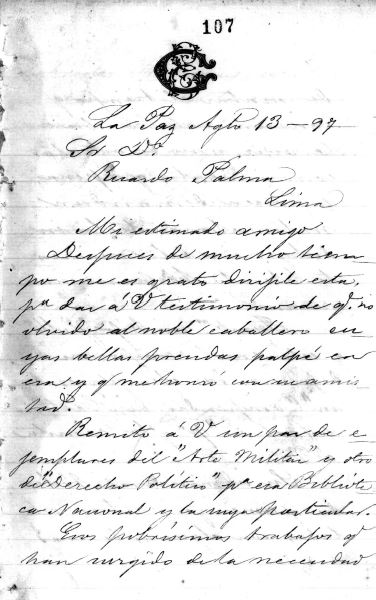 107
La Paz Agto 13-97
Sr Dr.
Ricardo Palma
Lima
Mi estimado amigo
Despues de mucho tiem
po me es grato dirijile esta,
pa dar á V testimonio de q. no
olvido al noble caballero cu
yas bellas prendas palpé en
esa, y q me honró con su amis
tad.
Remito á V un par de e
jemplares del "Arte Militar" y otro
de "Derecho Político" pa esa Bibliote
ca Nacional y la suya particular.
Esos pobrísimos trabajos q
han surgido de la necesidad